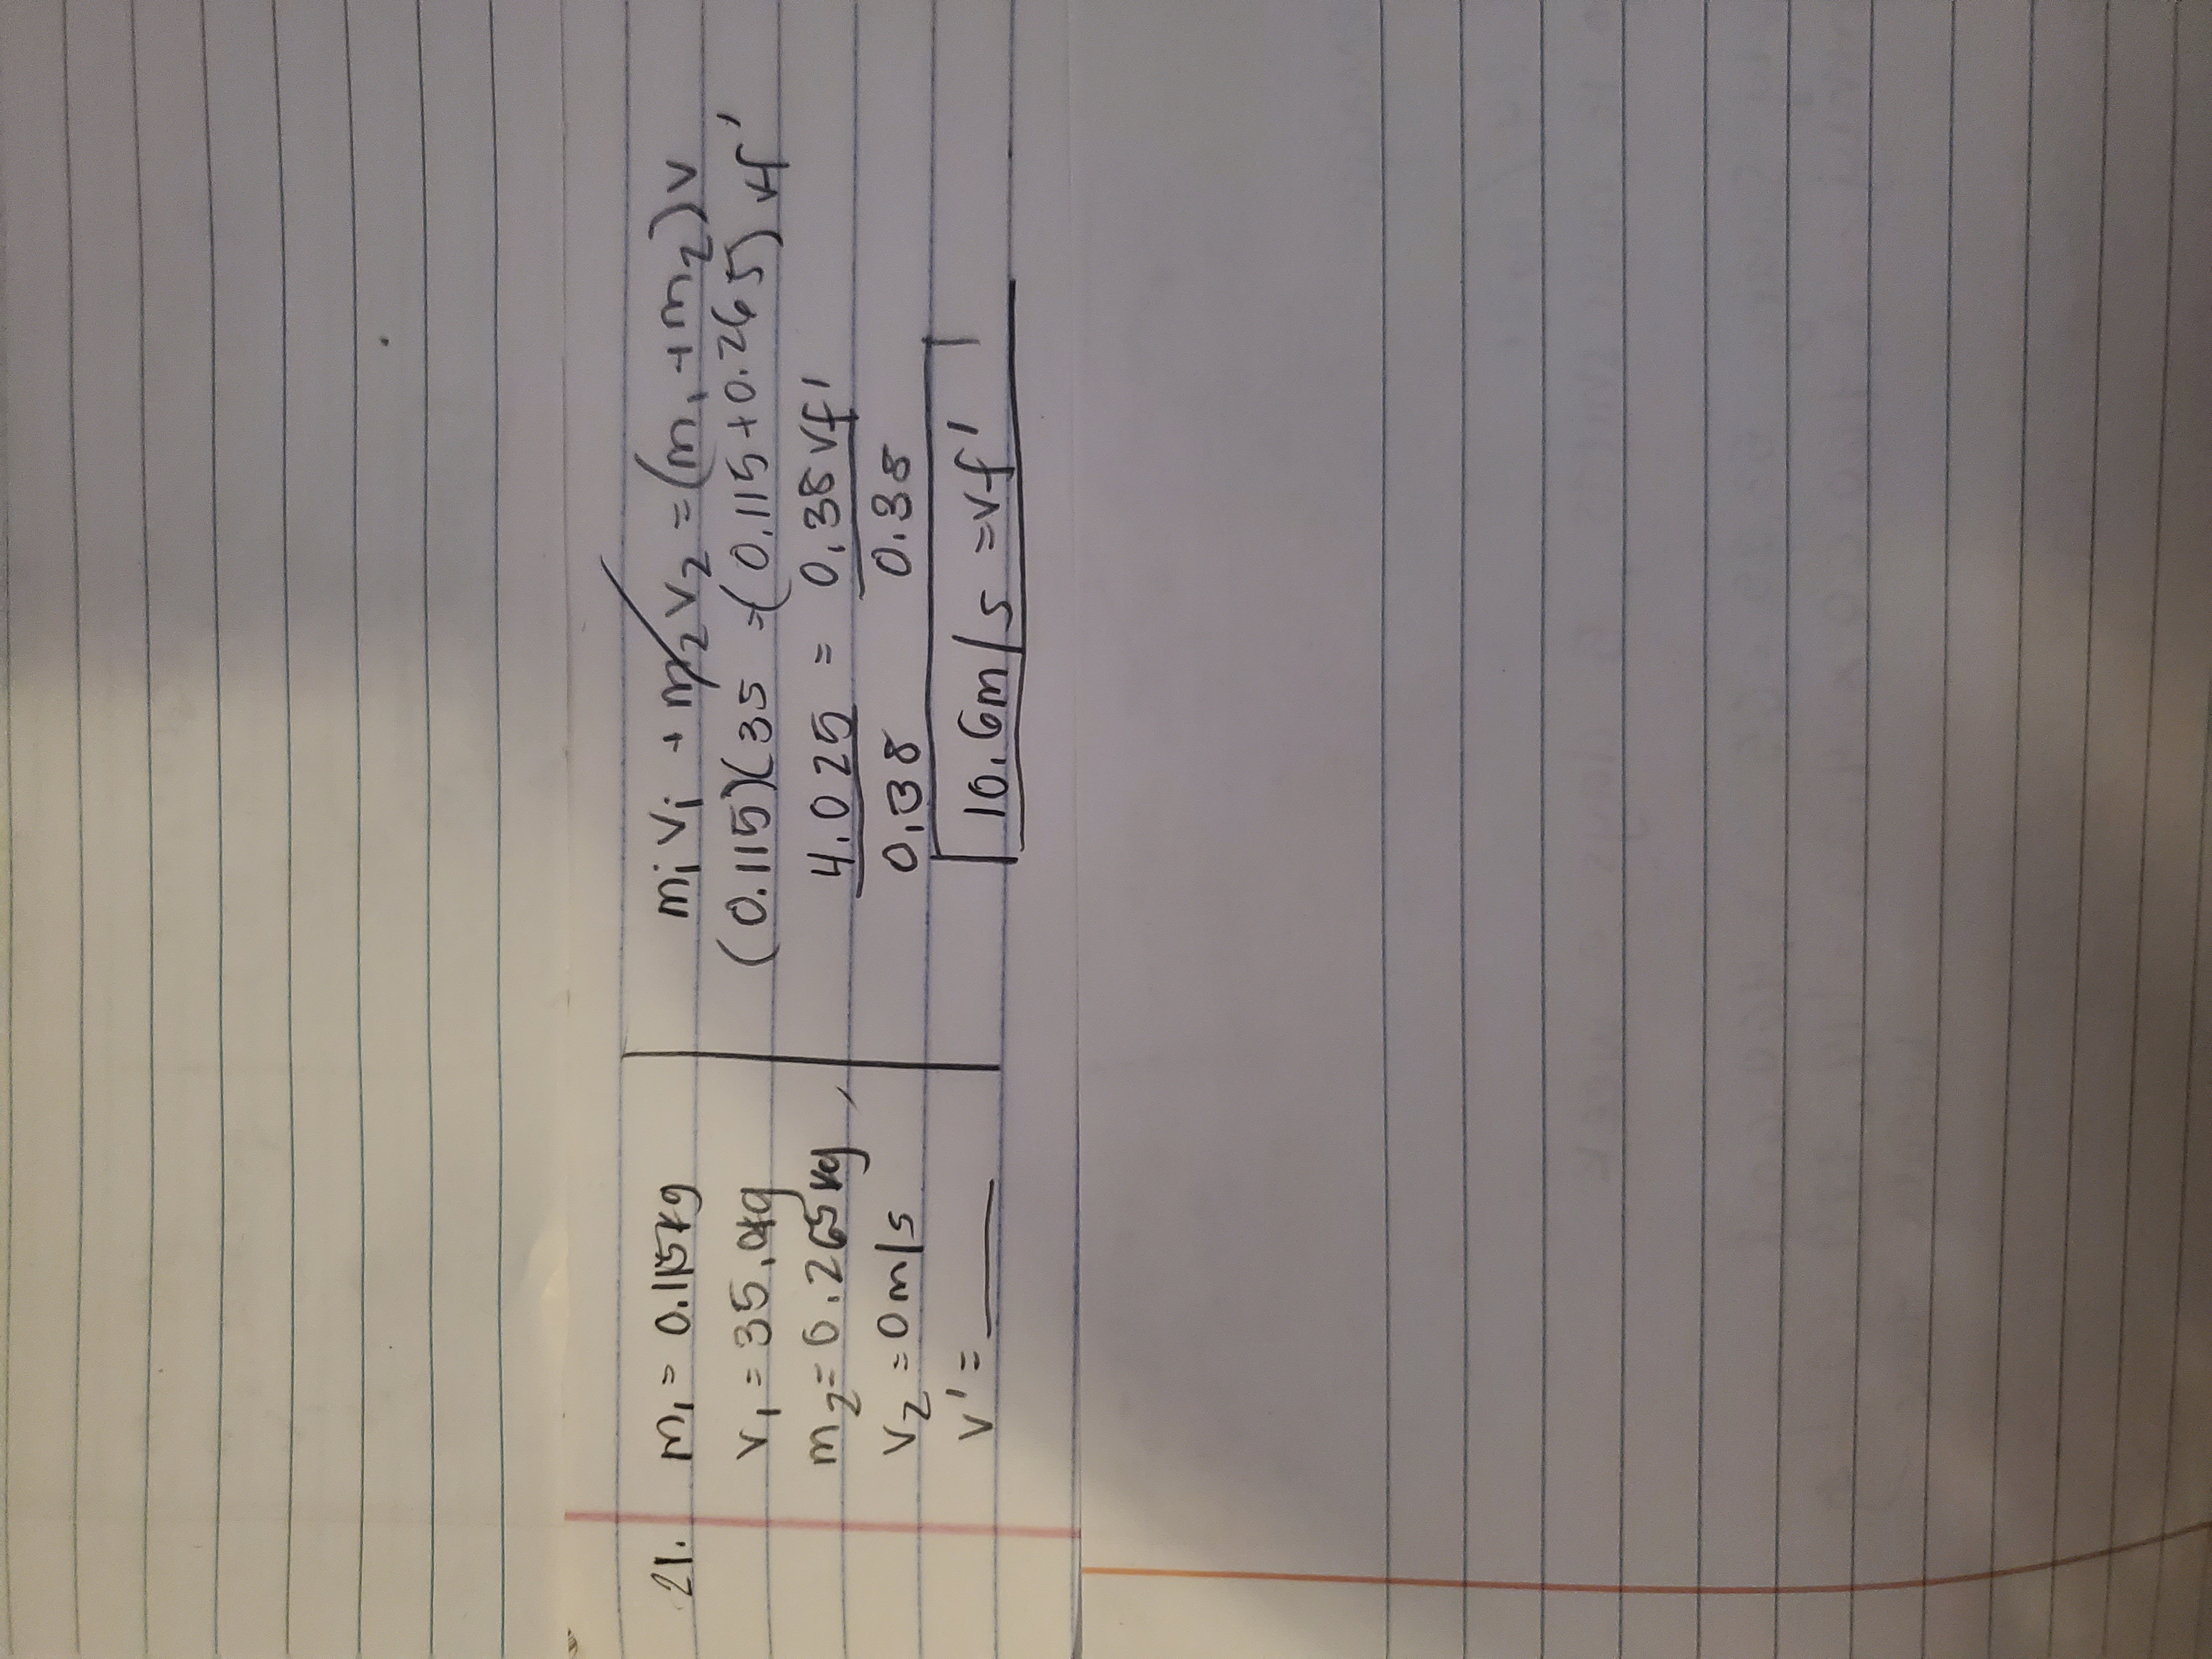 21. m₁ = 0.115kg
v₁ = 35.0kg
m₂ = 0.265kg
v₂ = 0 m/s
v' = ____
m₁v₁ + m₂v₂ = (m₁ + m₂)v
(0.115)(35 = (0.115 + 0.265) vf'
4.025 = 0.38 vf'
0.38 0.38
10.6m/s = vf'